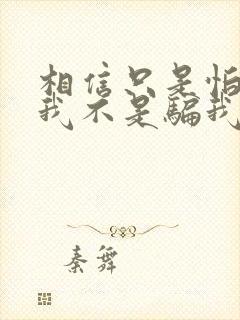 相信只是怕
我不是騙我
秦舞